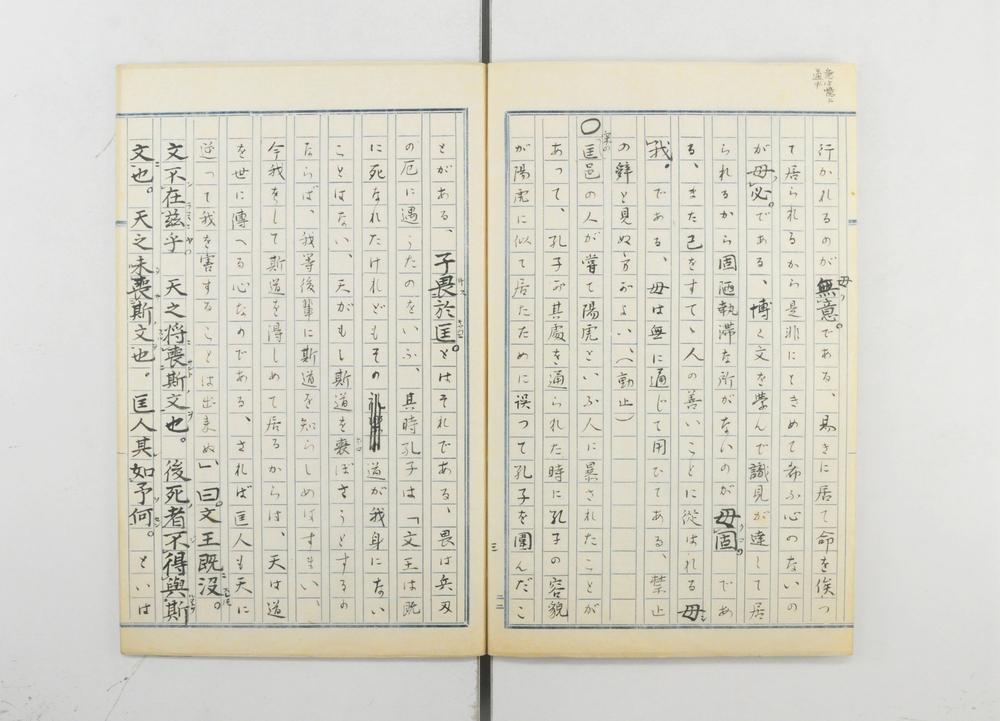 行かれるのが無意。である、易きに居て命を俟つ
て居られるから是非にときめて希ふ心のないの
が毋必。である、博く文を学んで識見が達して居
られるから固陋執滞な所がないのが毋固。であ
る、また己をすてゝ人の善いことに従はれる毋
我。である、毋は無に通じて用ひてある、禁止
の辞と見ぬ方がよい、(勿止)
〇匡邑の人が嘗て陽虎といふ人に暴されたことが
あって、孔子が其處を通られた時に孔子の容貌
が陽虎に似て居たために誤つて孔子を圍んだこ
とがある、子畏於匡。とはそれである、畏は兵刄
の厄に遇うたのをいふ、其時孔子は「文王は既
に死なれたけれどもその道が我身にない
ことはない、天がもし斯道を喪ぼさうとするの
ならば、我等後輩に斯道を知らしめはすまい、
今我をして斯道を得しめて居るからは、天は道
を世に傳へる心なのである、されば匡人も天に
逆って我を害することは出来ぬ」曰。文王既沒。
文不在茲乎 天之将喪斯文也。後死者不得與斯
文也。天之未喪斯文也。匡人其如予何。といは
三
二二